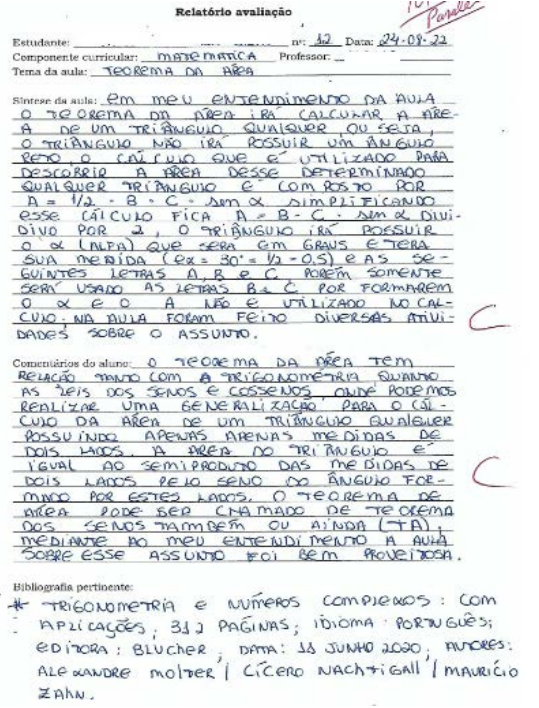 Relatório avaliação
Parale
Estudante: nº: 12 Data: 24-08-22
Componente curricular: MATEMÁTICA Professor:
Tema da aula: TEOREMA DA ÁREA
Síntese da aula: Em MEU ENTENDIMENTO DA AULA
O TEOREMA DA ÁREA IRÁ CALCULAR A ÁRE-
A DE UM TRIÂNGULO QUALQUER, OU SEJA,
O TRIÂNGULO NÃO IRÁ POSSUIR UM ÂNGULO
RETO, O CÁLCULO QUE É UTILIZADO PARA
DESCOBRIR A ÁREA DESSE DETERMINADO
QUALQUER TRIÂNGULO É COMPOSTO POR
A = 1/2 · B · C · sen α SIMPLIFICANDO
ESSE CÁLCULO FICA A = B · C · sen α DIVI-
DIVO POR 2, O TRIÂNGULO IRÁ POSSUIR
O α (ALFA) QUE SERÁ EM GRAUS E TERA
SUA MEDIDA (EX = 30° = 1/2 - 0,5) E AS SE-
GUINTES LETRAS A, B e C, PORÉM SOMENTE
SERÁ USADO AS LETRAS B e C POR FORMAREM
O α E O A NÃO É UTILIZADO NO CÁL-
CULO. NA AULA FORAM FEITO DIVERSAS ATIVI-
DADES SOBRE O ASSUNTO.
C
Comentários do aluno: O TEOREMA DA ÁREA TEM
RELAÇÃO TANTO COM A TRIGONOMETRIA QUANTO
AS LEIS DOS SENOS E COSSENOS ONDE PODEMOS
REALIZAR UMA GENERALIZAÇÃO PARA O CÁL-
CULO DA ÁREA DE UM TRIÂNGULO QUALQUER
POSSUINDO APENAS APENAS MEDIDAS DE
DOIS LADOS. A ÁREA DO TRIÂNGULO É
IGUAL AO SEMIPRODUTO DAS MEDIDAS DE
DOIS LADOS PELO SENO DO ÂNGULO FOR-
MADO POR ESTES LADOS. O TEOREMA DE
ÁREA PODE SER CHAMADO DE TEOREMA
DOS SENOS TAMBÉM OU AINDA (TA),
MEDIANTE AO MEU ENTENDIMENTO A AULA
SOBRE ESSE ASSUNTO FOI BEM PROVEITOSA.
C
Bibliografia pertinente:
* TRIGONOMETRIA E NÚMEROS COMPLEXOS: COM
APLICAÇÕES; 312 PÁGINAS; IDIOMA: PORTUGUÊS;
EDITORA: BLUCHER; DATA: 11 JUNHO 2020; AUTORES:
ALEXANDRE MOLTER / CÍCERO NACHTIGALL / MAURÍCIO
ZAHN.